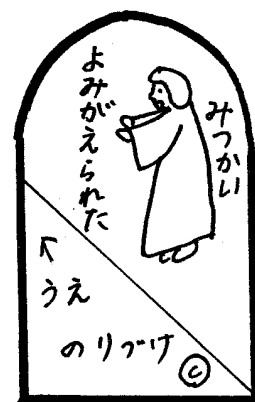 みつかい
よみがえられた
↑
うえ
のりづけ
©